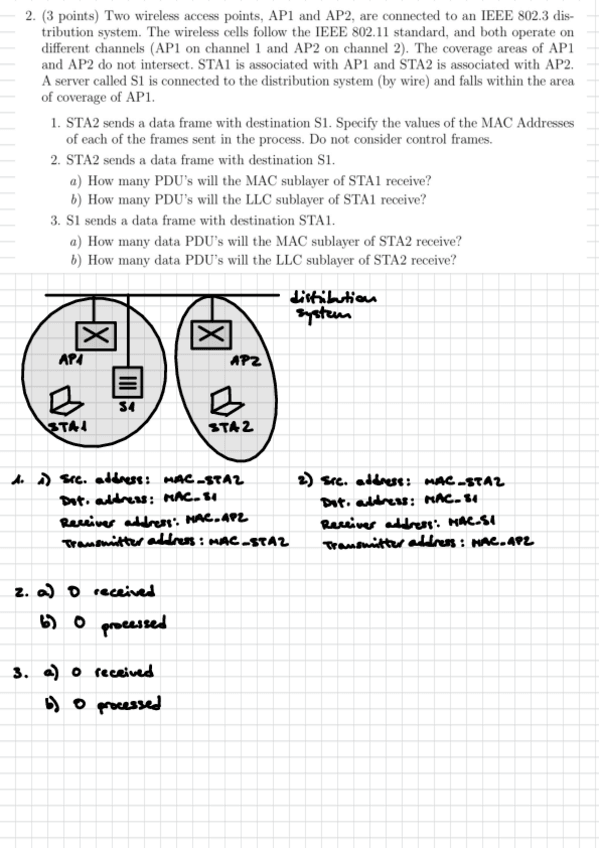 2. (3 points) Two wireless access points, AP1 and AP2, are connected to an IEEE 802.3 dis-
tribution system. The wireless cells follow the IEEE 802.11 standard, and both operate on
different channels (AP1 on channel 1 and AP2 on channel 2). The coverage areas of AP1
and AP2 do not intersect. STA1 is associated with AP1 and STA2 is associated with AP2.
A server called S1 is connected to the distribution system (by wire) and falls within the area
of coverage of AP1.
1. STA2 sends a data frame with destination S1. Specify the values of the MAC Addresses
of each of the frames sent in the process. Do not consider control frames.
2. STA2 sends a data frame with destination S1.
a) How many PDU's will the MAC sublayer of STA1 receive?
b) How many PDU's will the LLC sublayer of STA1 receive?
3. S1 sends a data frame with destination STA1.
a) How many data PDU's will the MAC sublayer of STA2 receive?
b) How many data PDU's will the LLC sublayer of STA2 receive?
distribution
system
AP1
AP2
S1
STA1
STA2
1. 1) Src. address: MAC_STA2
Dst. address: MAC_S1
Receiver address: MAC_AP2
Transmitter address: MAC_STA2
2) Src. address: MAC_STA2
Dst. address: MAC_S1
Receiver address: MAC_S1
Transmitter address: MAC_AP2
2. a) 0 received
b) 0 processed
3. a) 0 received
b) 0 processed